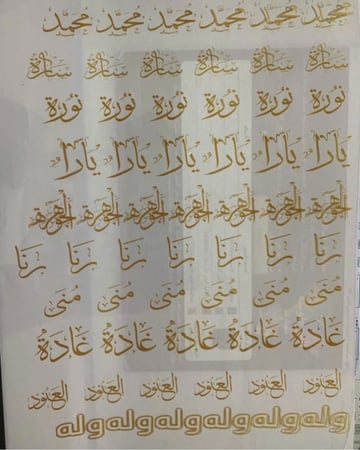 محمّد محمّد محمّد محمّد محمّد محمّد
سارة سارة سارة سارة سارة سارة
نورة نورة نورة نورة نورة نورة
يارا يارا يارا يارا يارا يارا
الجوهرة الجوهرة الجوهرة الجوهرة الجوهرة الجوهرة الجوهرة
رنا رنا رنا رنا رنا رنا رنا
مُنى مُنى مُنى مُنى مُنى مُنى
غادة غادة غادة غادة غادة
العنود العنود العنود العنود العنود العنود
وله وله وله وله وله وله